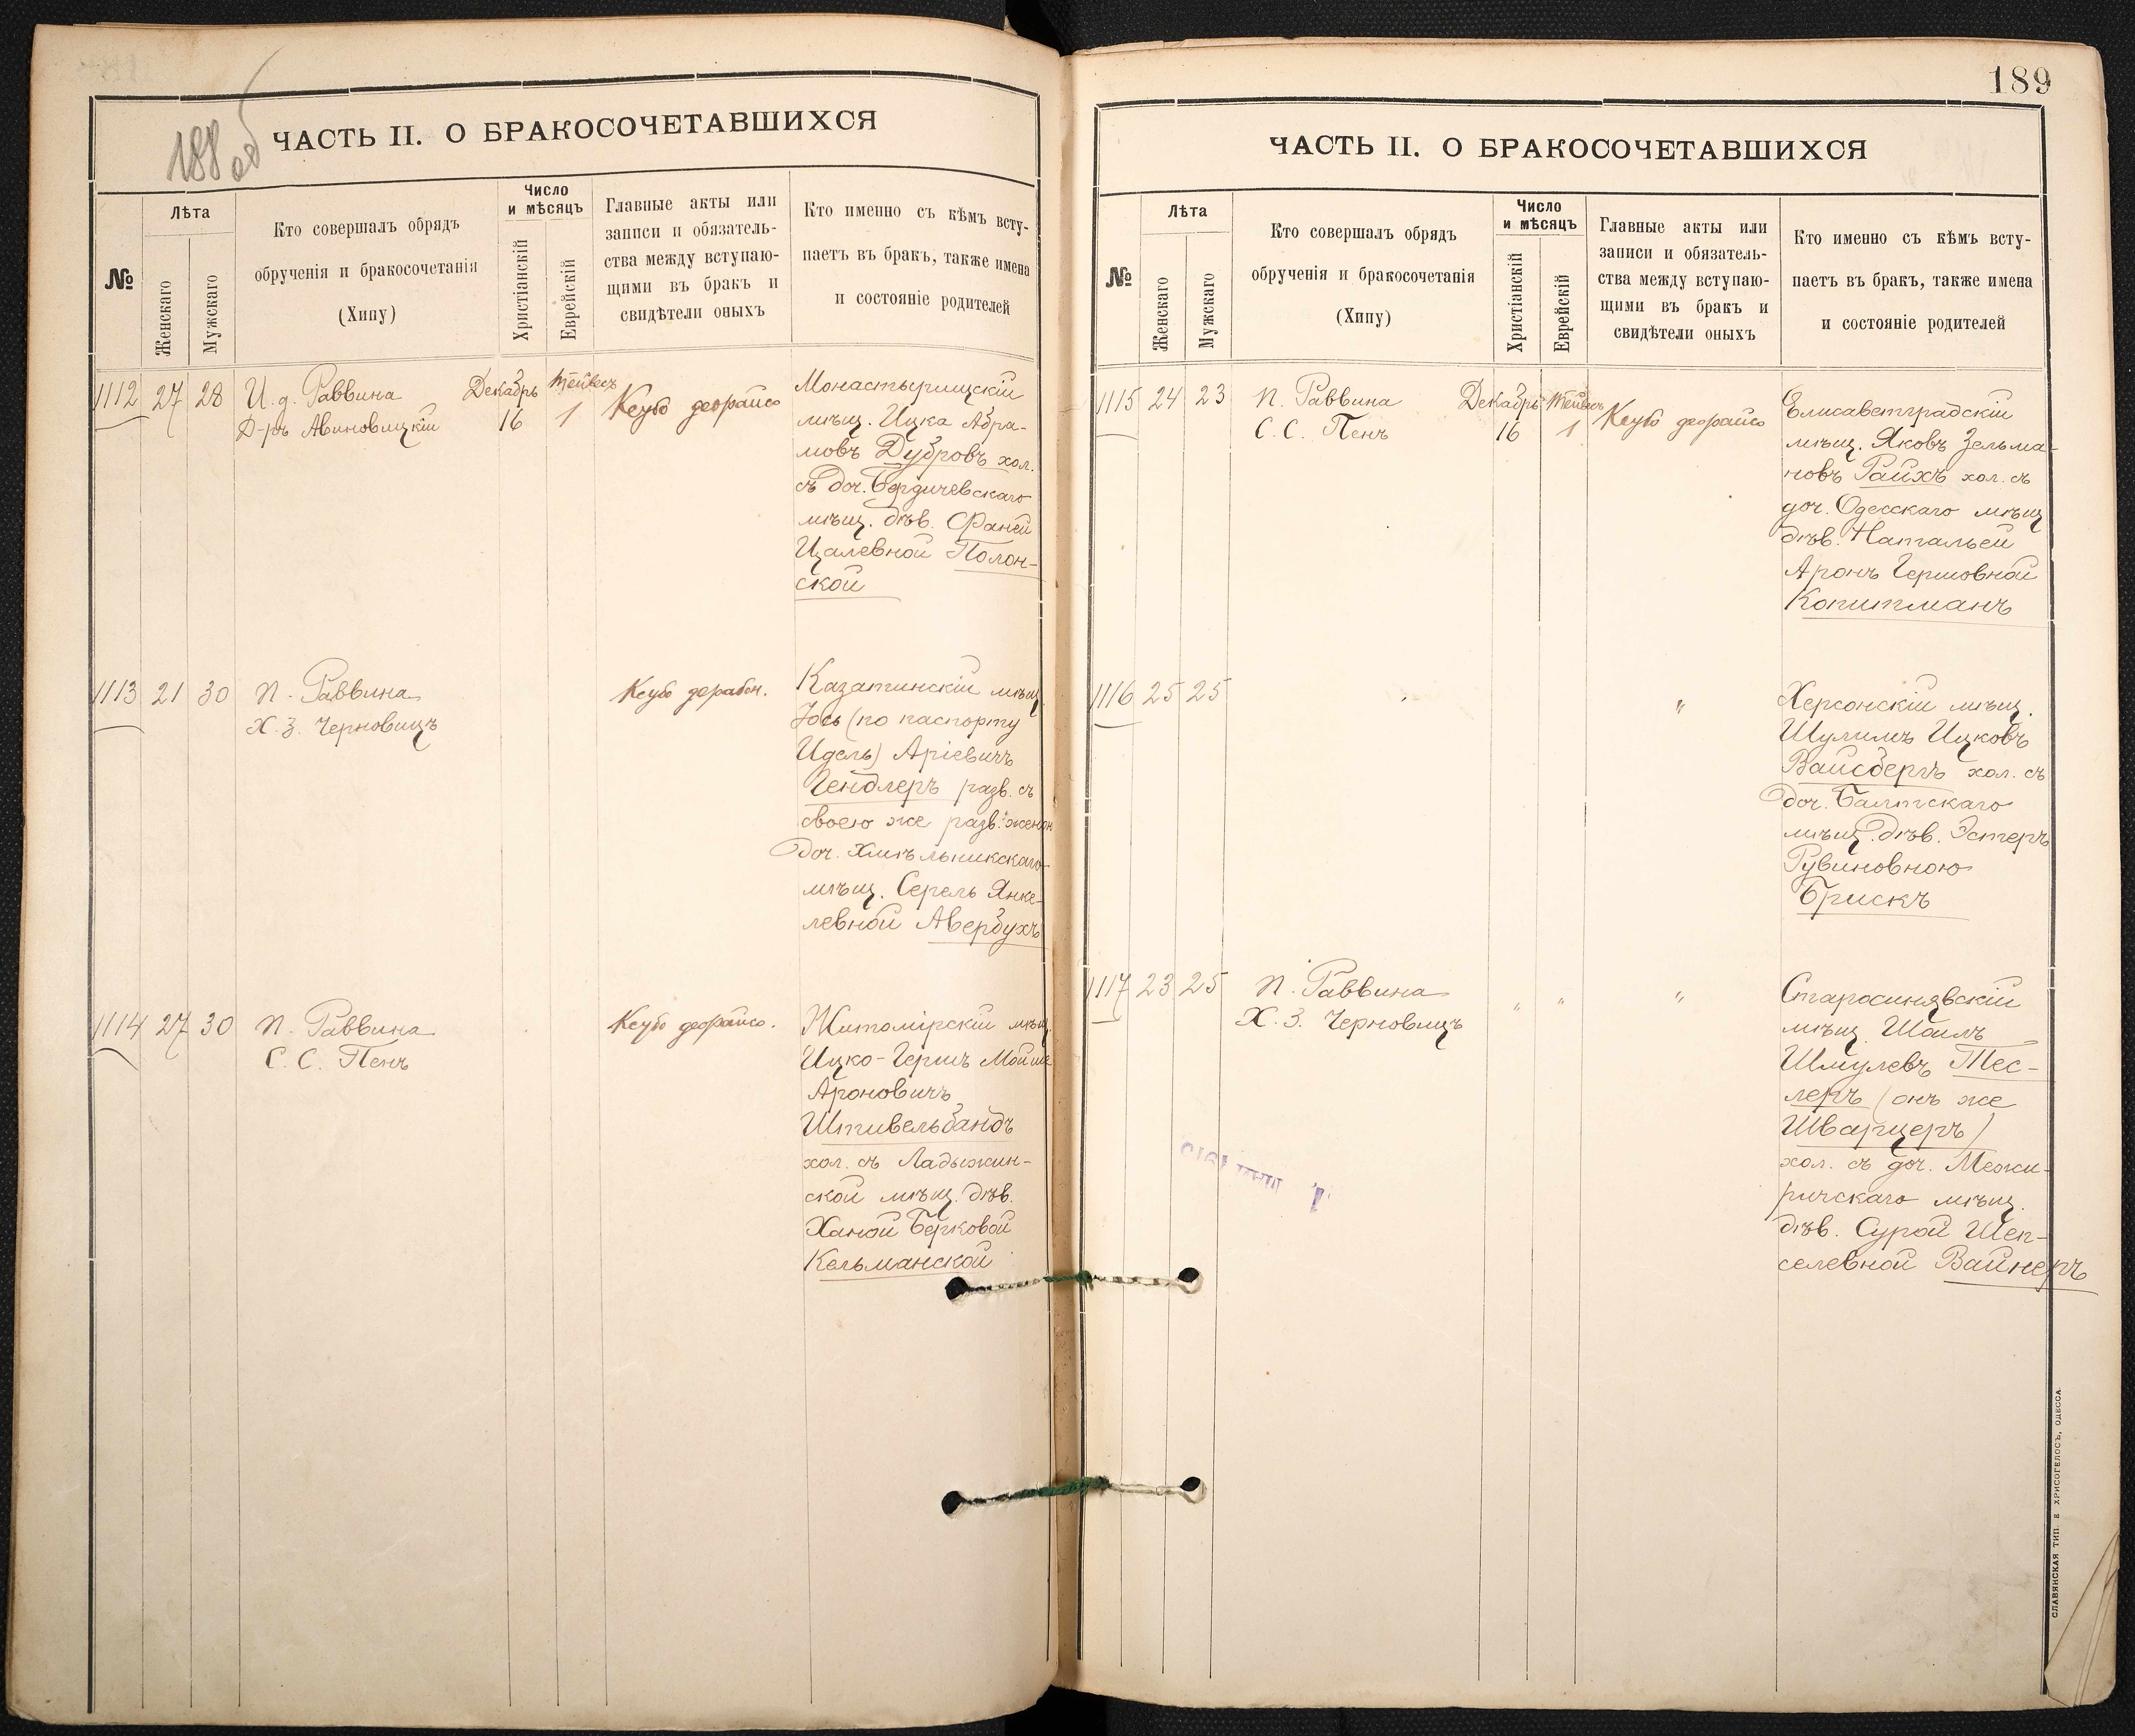 188 об
ЧАСТЬ II. О БРАКОСОЧЕТАВШИХСЯ
№
Лѣта
Женскаго
Мужскаго
Кто совершалъ обрядъ
обрученія и бракосочетанія
(Хипу)
Число
и мѣсяцъ
Христіанскій
Еврейскій
Главные акты или
записи и обязатель-
ства между вступаю-
щими въ бракъ и
свидѣтели оныхъ
Кто именно съ кѣмъ всту-
паетъ въ бракъ, также имена
и состояніе родителей
1112 27 28 И. д. Раввина Декабрь Тейвесъ
Д-ръ Авиновицкій 16 1 Кеубо деорайсо
Монастырищскій
мѣщ. Ицка Абра-
мовъ Дубровъ хол.
съ доч. Бердичевскаго
мѣщ. дѣв. Фаней
Цалевной Полон-
ской
1113 21 30 П. Раввина
Х. З. Черновицъ
Кеубо дерабон.
Казатинскій мѣщ.
Іось (по паспорту
Идель) Аріевичъ
Гендлеръ разв. съ
своею же разв. женой
доч. Хмѣльникскаго
мѣщ. Серель Янке-
левной Авербухъ
1114 27 30 П. Раввина
С. С. Пенъ
Кеубо деорайсо.
Житомірскій мѣщ.
Ицко-Гершъ Мойше
Ароновичъ
Штивельбандъ
хол. съ Ладыжин-
ской мѣщ. дѣв.
Ханой Берковой
Кельманской
189
ЧАСТЬ II. О БРАКОСОЧЕТАВШИХСЯ
№
Лѣта
Женскаго
Мужскаго
Кто совершалъ обрядъ
обрученія и бракосочетанія
(Хипу)
Число
и мѣсяцъ
Христіанскій
Еврейскій
Главные акты или
записи и обязатель-
ства между вступаю-
щими въ бракъ и
свидѣтели оныхъ
Кто именно съ кѣмъ всту-
паетъ въ бракъ, также имена
и состояніе родителей
1115 24 23 П. Раввина Декабрь Тейвесъ
С. С. Пенъ 16 1 Кеубо деорайсо
Елисаветградскій
мѣщ. Яковъ Зельма-
новъ Райхъ хол. съ
доч. Одесскаго мѣщ
дѣв. Натальей
Аронъ Гершовной
Копитманъ
1116 25 25 "
Херсонскій мѣщ.
Шулимъ Ицковъ
Вайсбергъ хол. съ
доч. Балтскаго
мѣщ. дѣв. Эстеръ
Рувиновною
Брискъ
1117 23 25 П. Раввина
Х. З. Черновицъ " " "
Старосинявскій
мѣщ. Шоилъ
Шмулевъ Тес-
леръ (онъ же
Шварцеръ)
хол. съ доч. Межи-
ричскаго мѣщ.
дѣв. Сурой Шеп-
селевной Вайнеръ
СЛАВЯНСКАЯ ТИП. Е ХРИСОГЕЛОСЪ, ОДЕССА